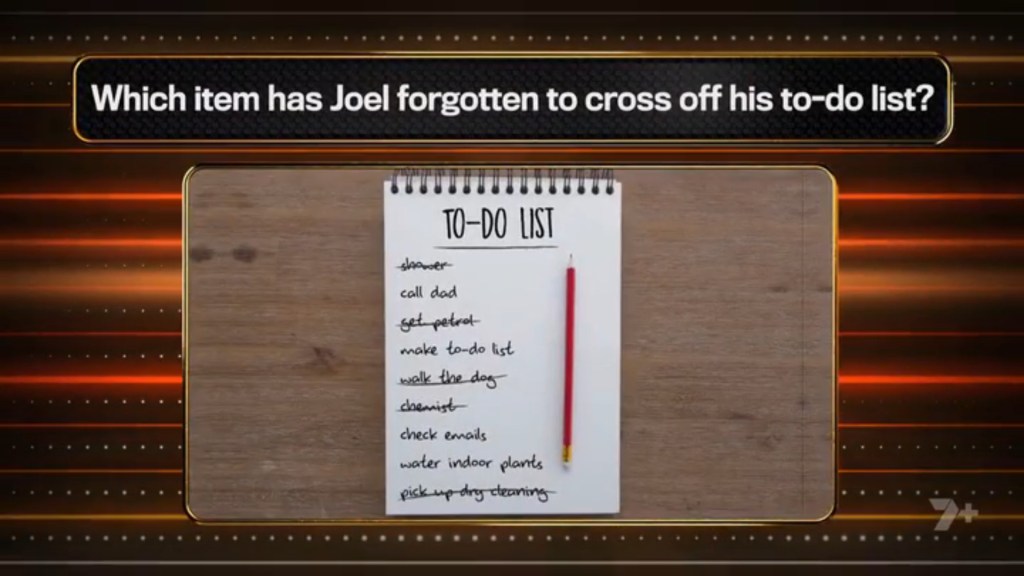 Which item has Joel forgotten to cross off his to-do list?
TO-DO LIST
shower
call dad
get petrol
make to-do list
walk the dog
chemist
check emails
water indoor plants
pick up dry cleaning
7+